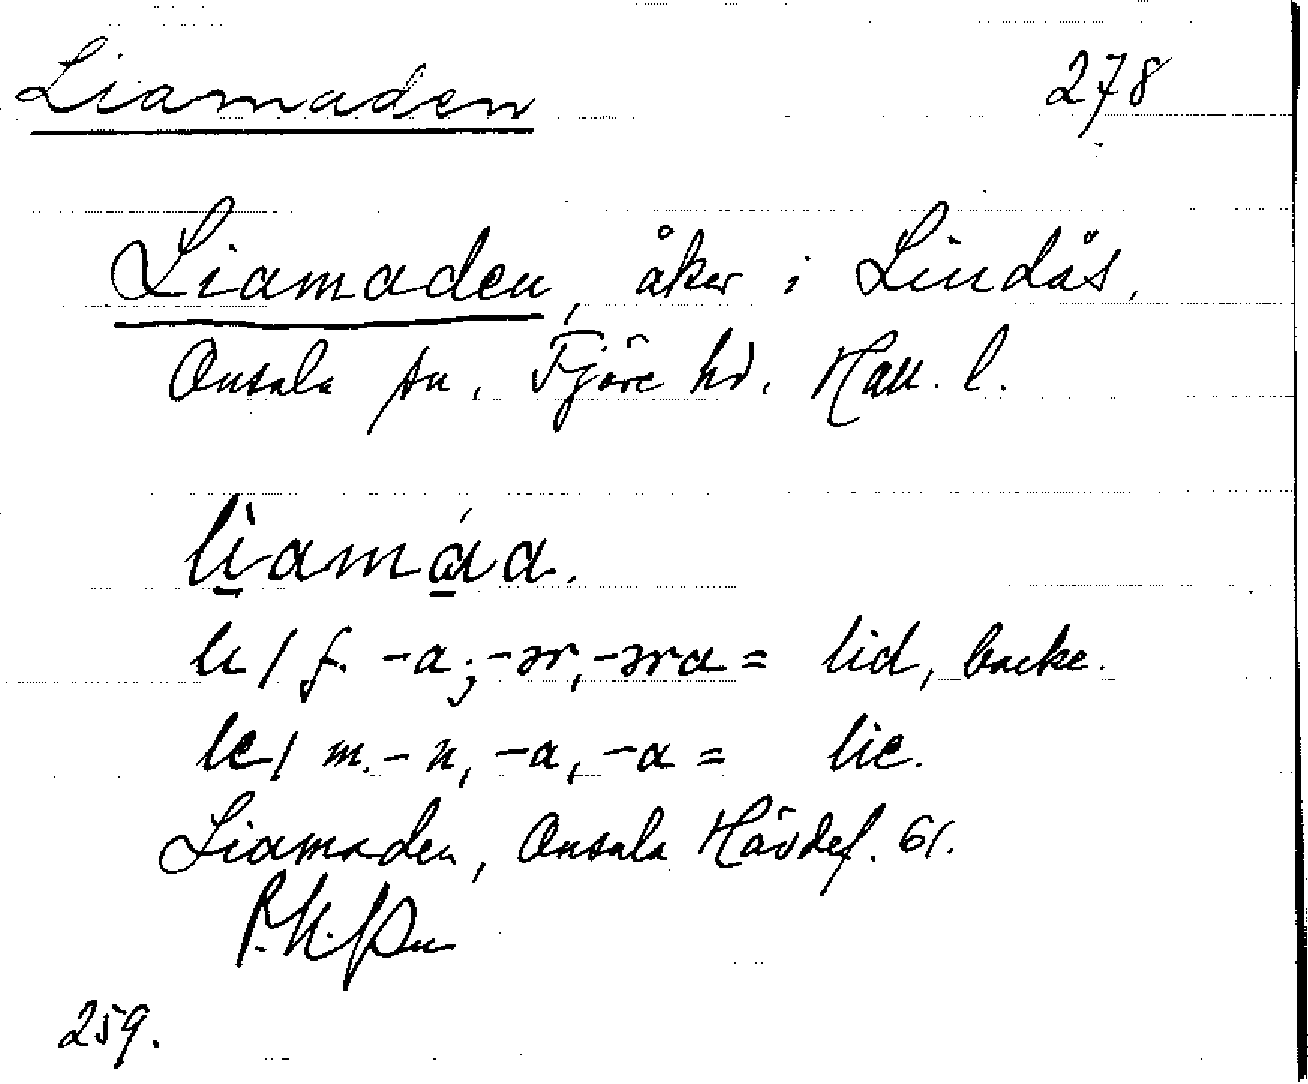 Liamaden 278
Liamaden, åker i Lindås,
Onsala sn, Fjäre hd, Hall. l.
lìamáa.
li / f. -a; -ər, -əra = lid, backe.
le / m. -n, -a, -a = lie.
Liamaden, Onsala Hävdef. 61.
259.